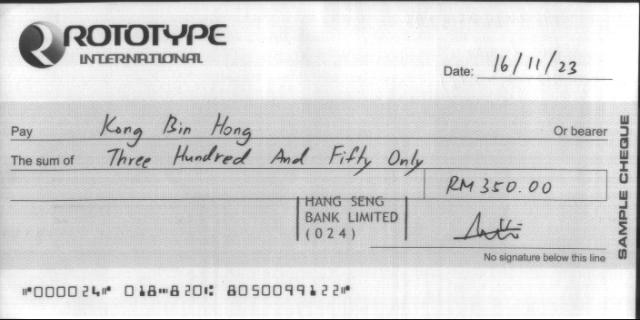 ROTOTYPE
INTERNATIONAL
Date: 16/11/23
Pay Kong Bin Hong Or bearer
The sum of Three Hundred And Fifty Only
RM 350.00
HANG SENG
BANK LIMITED
(024)
No signature below this line
SAMPLE CHEQUE
⑈000024⑈ 018⑉820⑆ 8050099122⑈